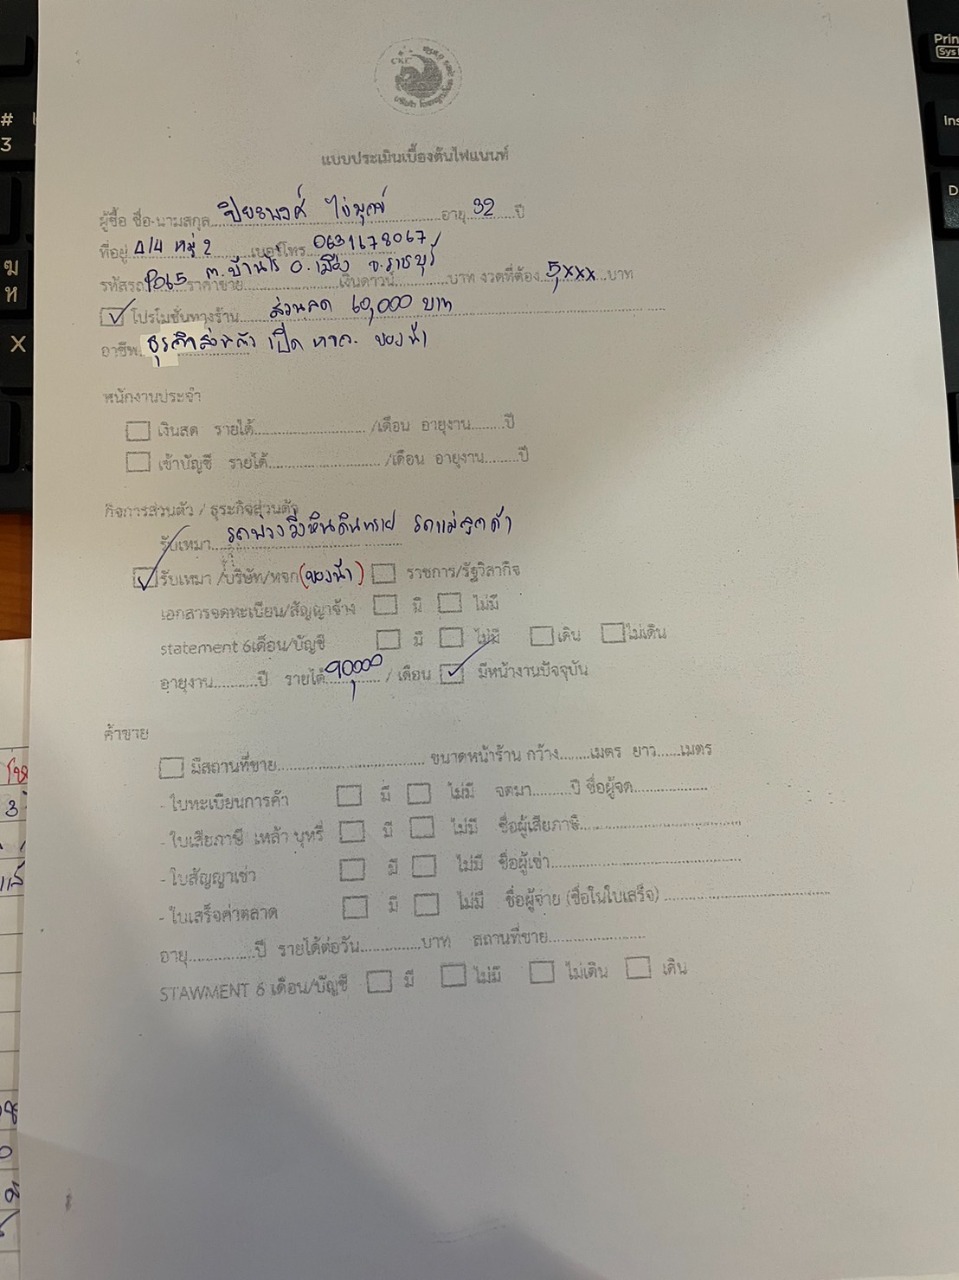 แบบประเมินเบื้องต้นไฟแนนท์
ผู้ซื้อ ชื่อ-นามสกุล ปิยะพงศ์ อายุ 32 ปี
ที่อยู่ 4/4 หมู่ 2 เบอร์โทร 0631678067
ต.บ้านไร่ อ.เมือง จ.ราชบุรี
รหัสรถ P065 ราคาขาย เงินดาวน์ บาท งวดที่ต้อง 5,xxx บาท
โปรโมชั่นทางร้าน ส่วนลด 60,000 บาท
อาชีพ ธุรกิจส่วนตัว เปิด หจก. ของน้า
พนักงานประจำ
เงินสด รายได้ /เดือน อายุงาน ปี
เข้าบัญชี รายได้ /เดือน อายุงาน ปี
กิจการส่วนตัว / ธุระกิจส่วนตัว
รับเหมา รถพ่วงวิ่งหินดินทราย รถแม่ลูกค้า
รับเหมา /บริษัท/หจก (ของน้า) ราชการ/รัฐวิสากิจ
เอกสารจดทะเบียน/สัญญาจ้าง มี ไม่มี
statement 6เดือน/บัญชี มี ไม่มี เดิน ไม่เดิน
อายุงาน ปี รายได้ 90,000 / เดือน มีหน้างานปัจจุบัน
ค้าขาย
มีสถานที่ขาย ขนาดหน้าร้าน กว้าง เมตร ยาว เมตร
- ใบทะเบียนการค้า มี ไม่มี จดมา ปี ชื่อผู้จด
- ใบเสียภาษี เหล้า บุหรี่ มี ไม่มี ชื่อผู้เสียภาษี
- ใบสัญญาเช่า มี ไม่มี ชื่อผู้เช่า
- ใบเสร็จค่าตลาด มี ไม่มี ชื่อผู้จ่าย (ชื่อในใบเสร็จ)
อายุ ปี รายได้ต่อวัน บาท สถานที่ขาย
STAWMENT 6 เดือน/บัญชี มี ไม่มี ไม่เดิน เดิน